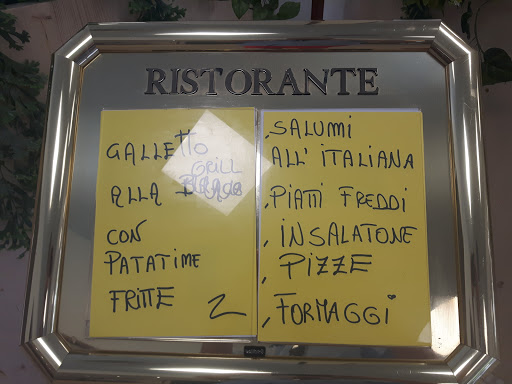 RISTORANTE
GALLETTO
GRILL
ALLA
CON
PATATIME
FRITTE
, SALUMI
ALL' ITALIANA
, PIATTI FREDDI
, INSALATONE
, PIZZE
, FORMAGGI